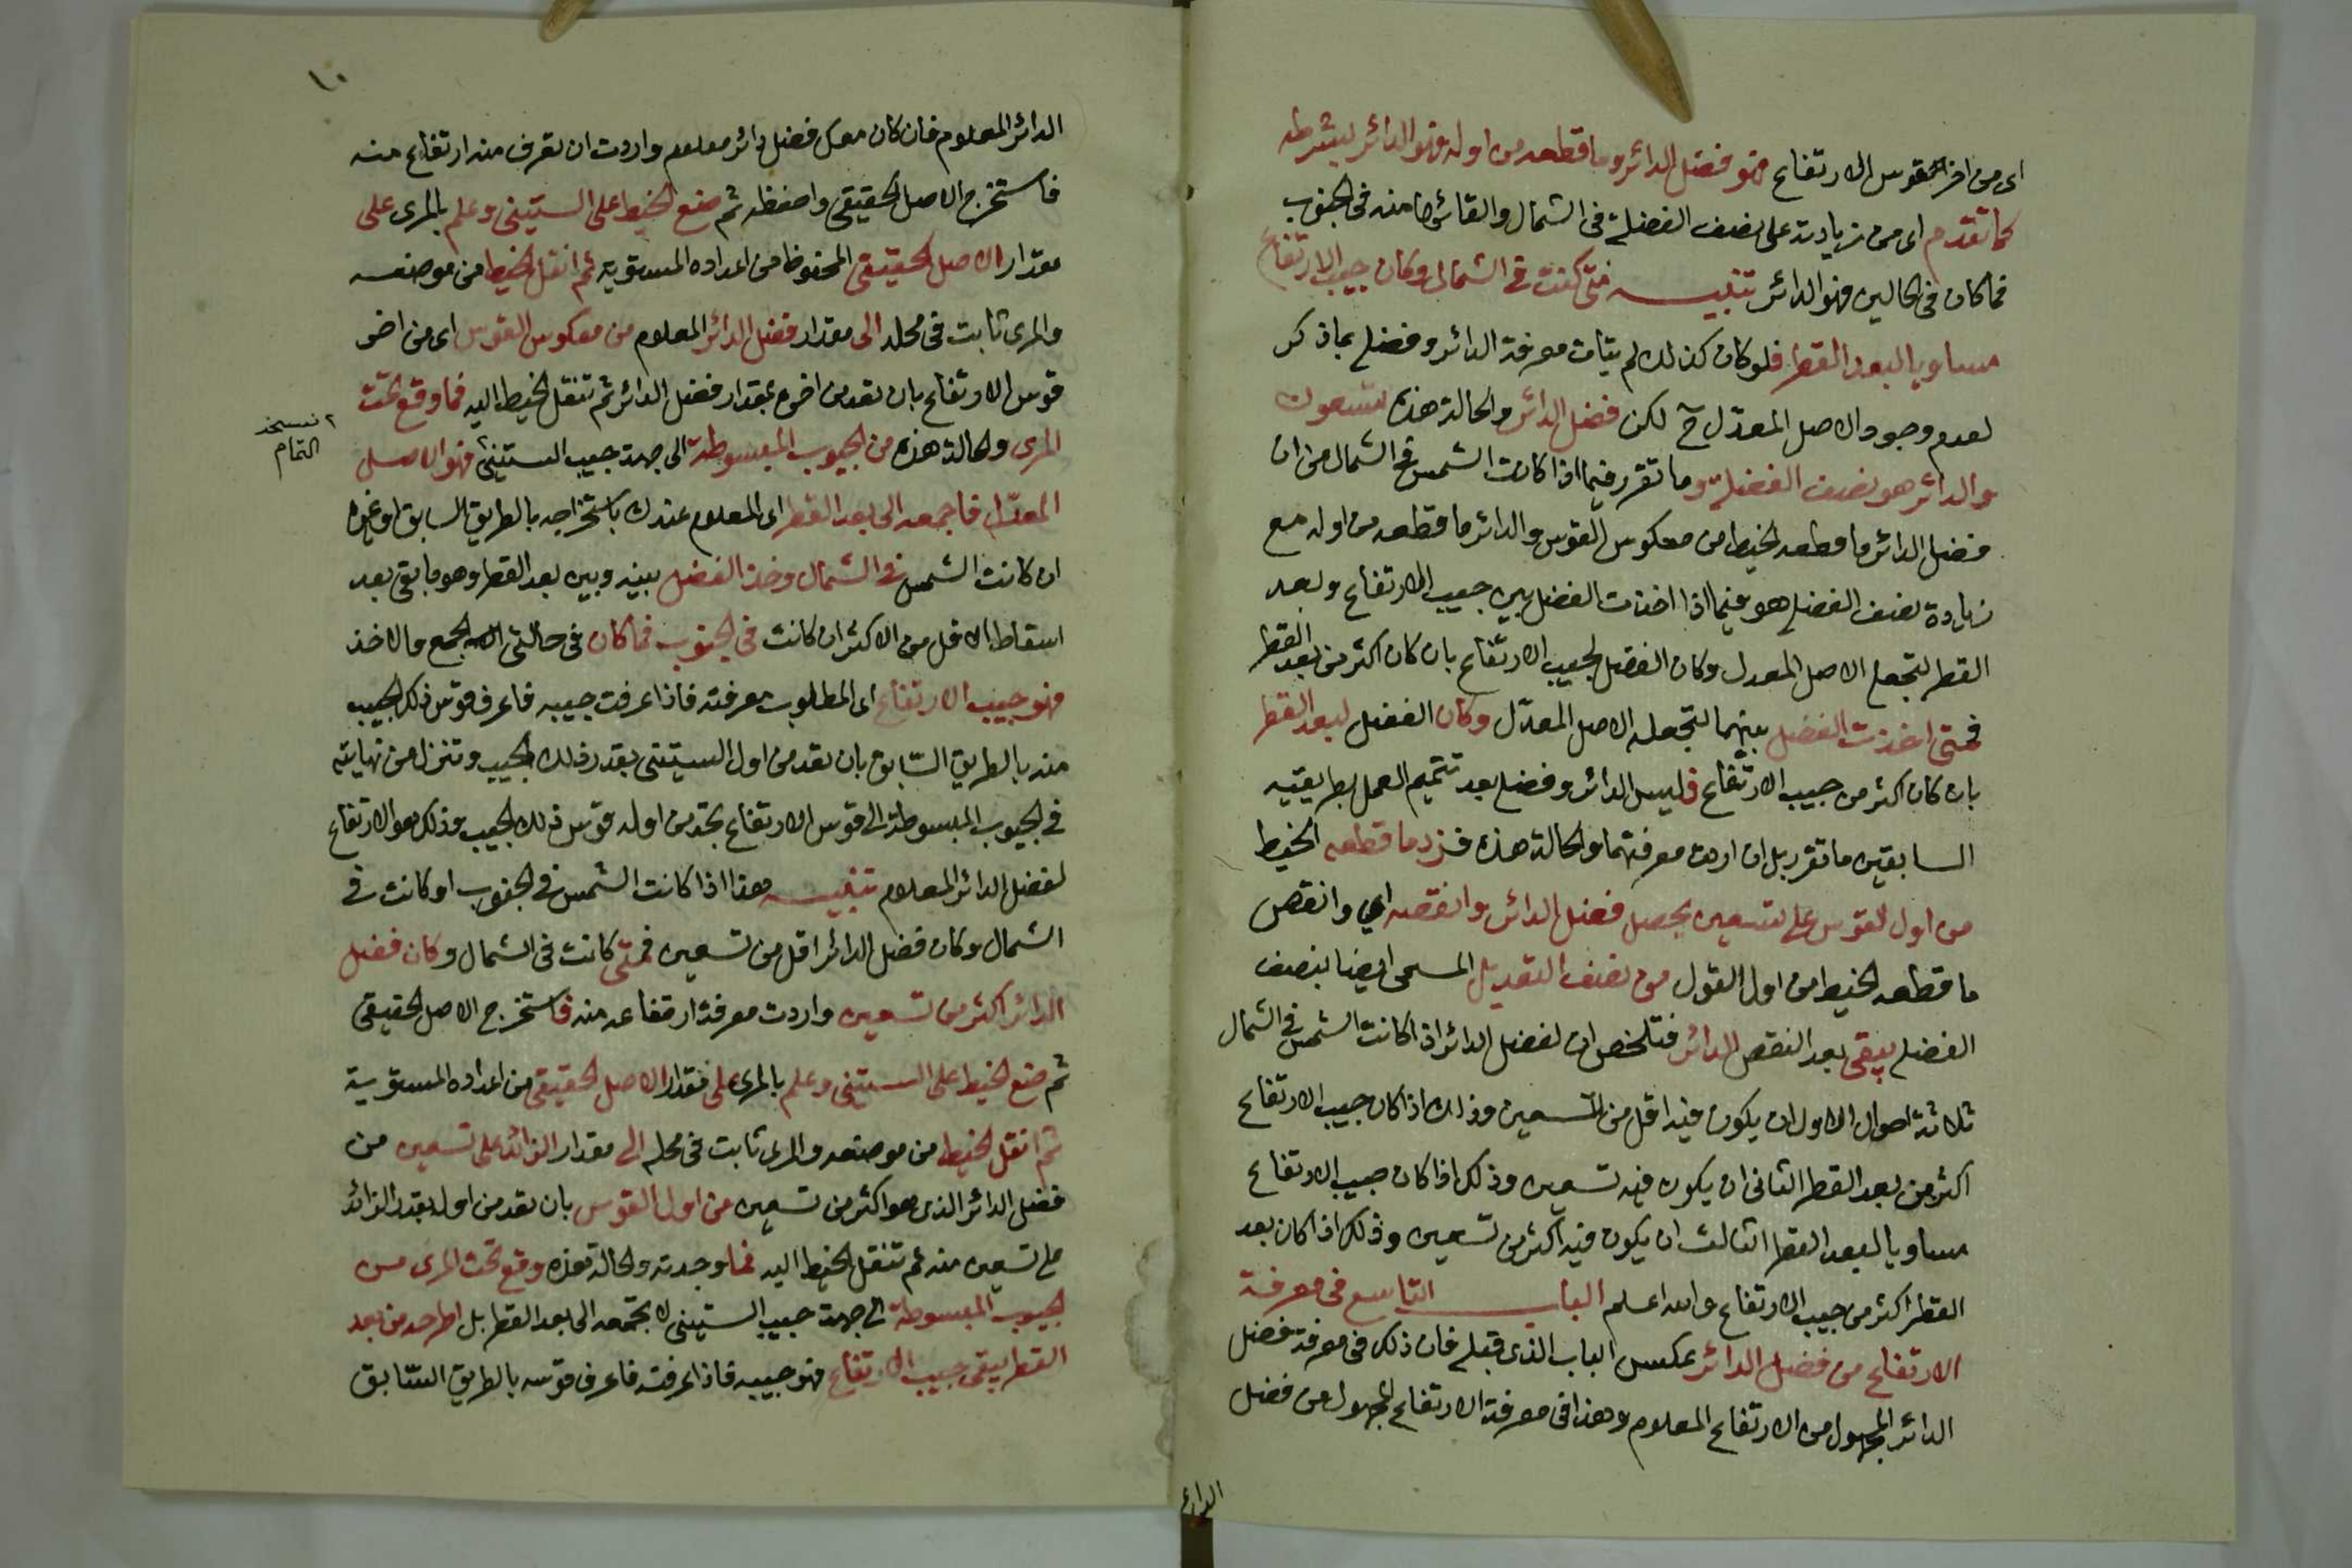 اى من اخر قوس الارتفاع فهو فضل الدائر وما قطعه من اوله فهو الدائر بشرطه
كما تقدم اى من زيادته على نصف الفضلة فى الشمال والقائه منه فى الجنوب
فما كان فى الحالين فهو الدائر تنبيه متى كنت فى الشمال وكان جيب الارتفاع
مساويا لبعد القطر فلو كان كذلك لم يتات معرفة الدائر وفضله بما ذكر
لعدم وجود الاصل المعدل ح لكن فضل الدائر والحالة هذه تسعون
والدائر هو نصف الفضلة وما تقرر فيما اذا كانت الشمس فى الشمال من ان
فضل الدائر ما قطعه الخيط من معكوس القوس والدائر ما قطعه من اوله مع
زيادة نصف الفضله هو فيما اذا اخذت الفضل بين جيب الارتفاع وبعد
القطر لتجعله الاصل المعدل وكان الفضل لجيب الارتفاع بان كان اكثر من بعد القطر
فمتى اخذت الفضل بينهما لتجعله الاصل المعدل وكان الفضل لبعد القطر
بان كان اكثر من جيب الارتفاع فليس الدائر وفضله بعد تتميم العمل بطريقيه
السابقين ما تقرر بل ان اردت معرفتهما والحالة هذه فزد ما قطعه الخيط
من اول القوس على تسعين يحصل فضل الدائر وانقصه اي وانقص
ما قطعه الخيط من اول القوس من نصف التعديل المسمى ايضا بنصف
الفضله يبقى بعد النقص الدائر فتلخص ان لفضل الدائر اذا كانت الشمس فى الشمال
ثلاثة احوال الاول ان يكون فيه اقل من تسعين وذلك اذا كان جيب الارتفاع
اكثر من بعد القطر الثانى ان يكون فيه تسعين وذلك اذا كان جيب الارتفاع
مساويا لبعد القطر الثالث ان يكون فيه اكثر من تسعين وذلك اذا كان بعد
القطر اكثر من جيب الارتفاع والله اعلم الباب التاسع فى معرفة
الارتفاع من فضل الدائر بعكس الباب الذى قبله فان ذلك فى معرفة فضل
الدائر المجهول من الارتفاع المعلوم وهذا فى معرفة الارتفاع المجهول من فضل
الدائر
١٠
الدائر المعلوم فان كان معك فضل دائر معلوم واردت ان تعرف منه ارتفاع منه
فاستخرج الاصل الحقيقى واحفظه ثم ضع الخيط على الستينى وعلم بالمرى على
مقدار الاصل الحقيقى المحفوظ من اعداده المستوية ثم انقل الخيط من موضعه
والمرى ثابت فى محله الى مقدار فضل الدائر المعلوم من معكوس القوس اى من اخر
قوس الارتفاع بان تعد من اخره بمقدار فضل الدائر ثم تنقل الخيط اليه فما وقع تحت
المرى والحالة هذه من الجيوب المبسوطة الى جهة جيب الستينى فهو الاصل
نسخه
التمام
المعدل فاجمعه الى بعد القطر اى المعلوم عندك باستخراجه بالطريق السابق او غيره
ان كانت الشمس فى الشمال وخذ الفضل بينه وبين بعد القطر وهو ما بقى بعد
اسقاط الاقل من الاكثر ان كانت فى الجنوب فما كان فى حالتى الجمع والاخذ
فهو جيب الارتفاع اى المطلوب معرفته فاذا عرفت جيبه فاعرف قوس ذلك الجيب
منه بالطريق السابق بان تعد من اول الستينى بقدر ذلك الجيب وتنزل من نهايته
فى الجيوب المبسوطة الى قوس الارتفاع تجد من اوله قوس ذلك الجيب وذلك هو الارتفاع
لفضل الدائر المعلوم تنبيه هذا اذا كانت الشمس فى الجنوب او كانت فى
الشمال وكان فضل الدائر اقل من تسعين فمتى كانت فى الشمال وكان فضل
الدائر اكثر من تسعين واردت معرفة ارتفاعه منه فاستخرج الاصل الحقيقى
ثم ضع الخيط على الستينى وعلم بالمرى على مقدار الاصل الحقيقى من اعداده المستوية
ثم انقل الخيط من موضعه والمرى ثابت فى محله الى مقدار الزائد على تسعين من
فضل الدائر الذى هو اكثر من تسعين من اول القوس بان تعد من اوله بقدر الزائد
على تسعين منه ثم تنقل الخيط اليه فما وجدته والحالة هذه وقع تحت المرى من
الجيوب المبسوطة الى جهة جيب الستينى لا تجمعه الى بعد القطر بل اطرحه من بعد
القطر يبقى جيب الارتفاع فهو جيبه فاذا عرفته فاعرف قوسه بالطريق السابق